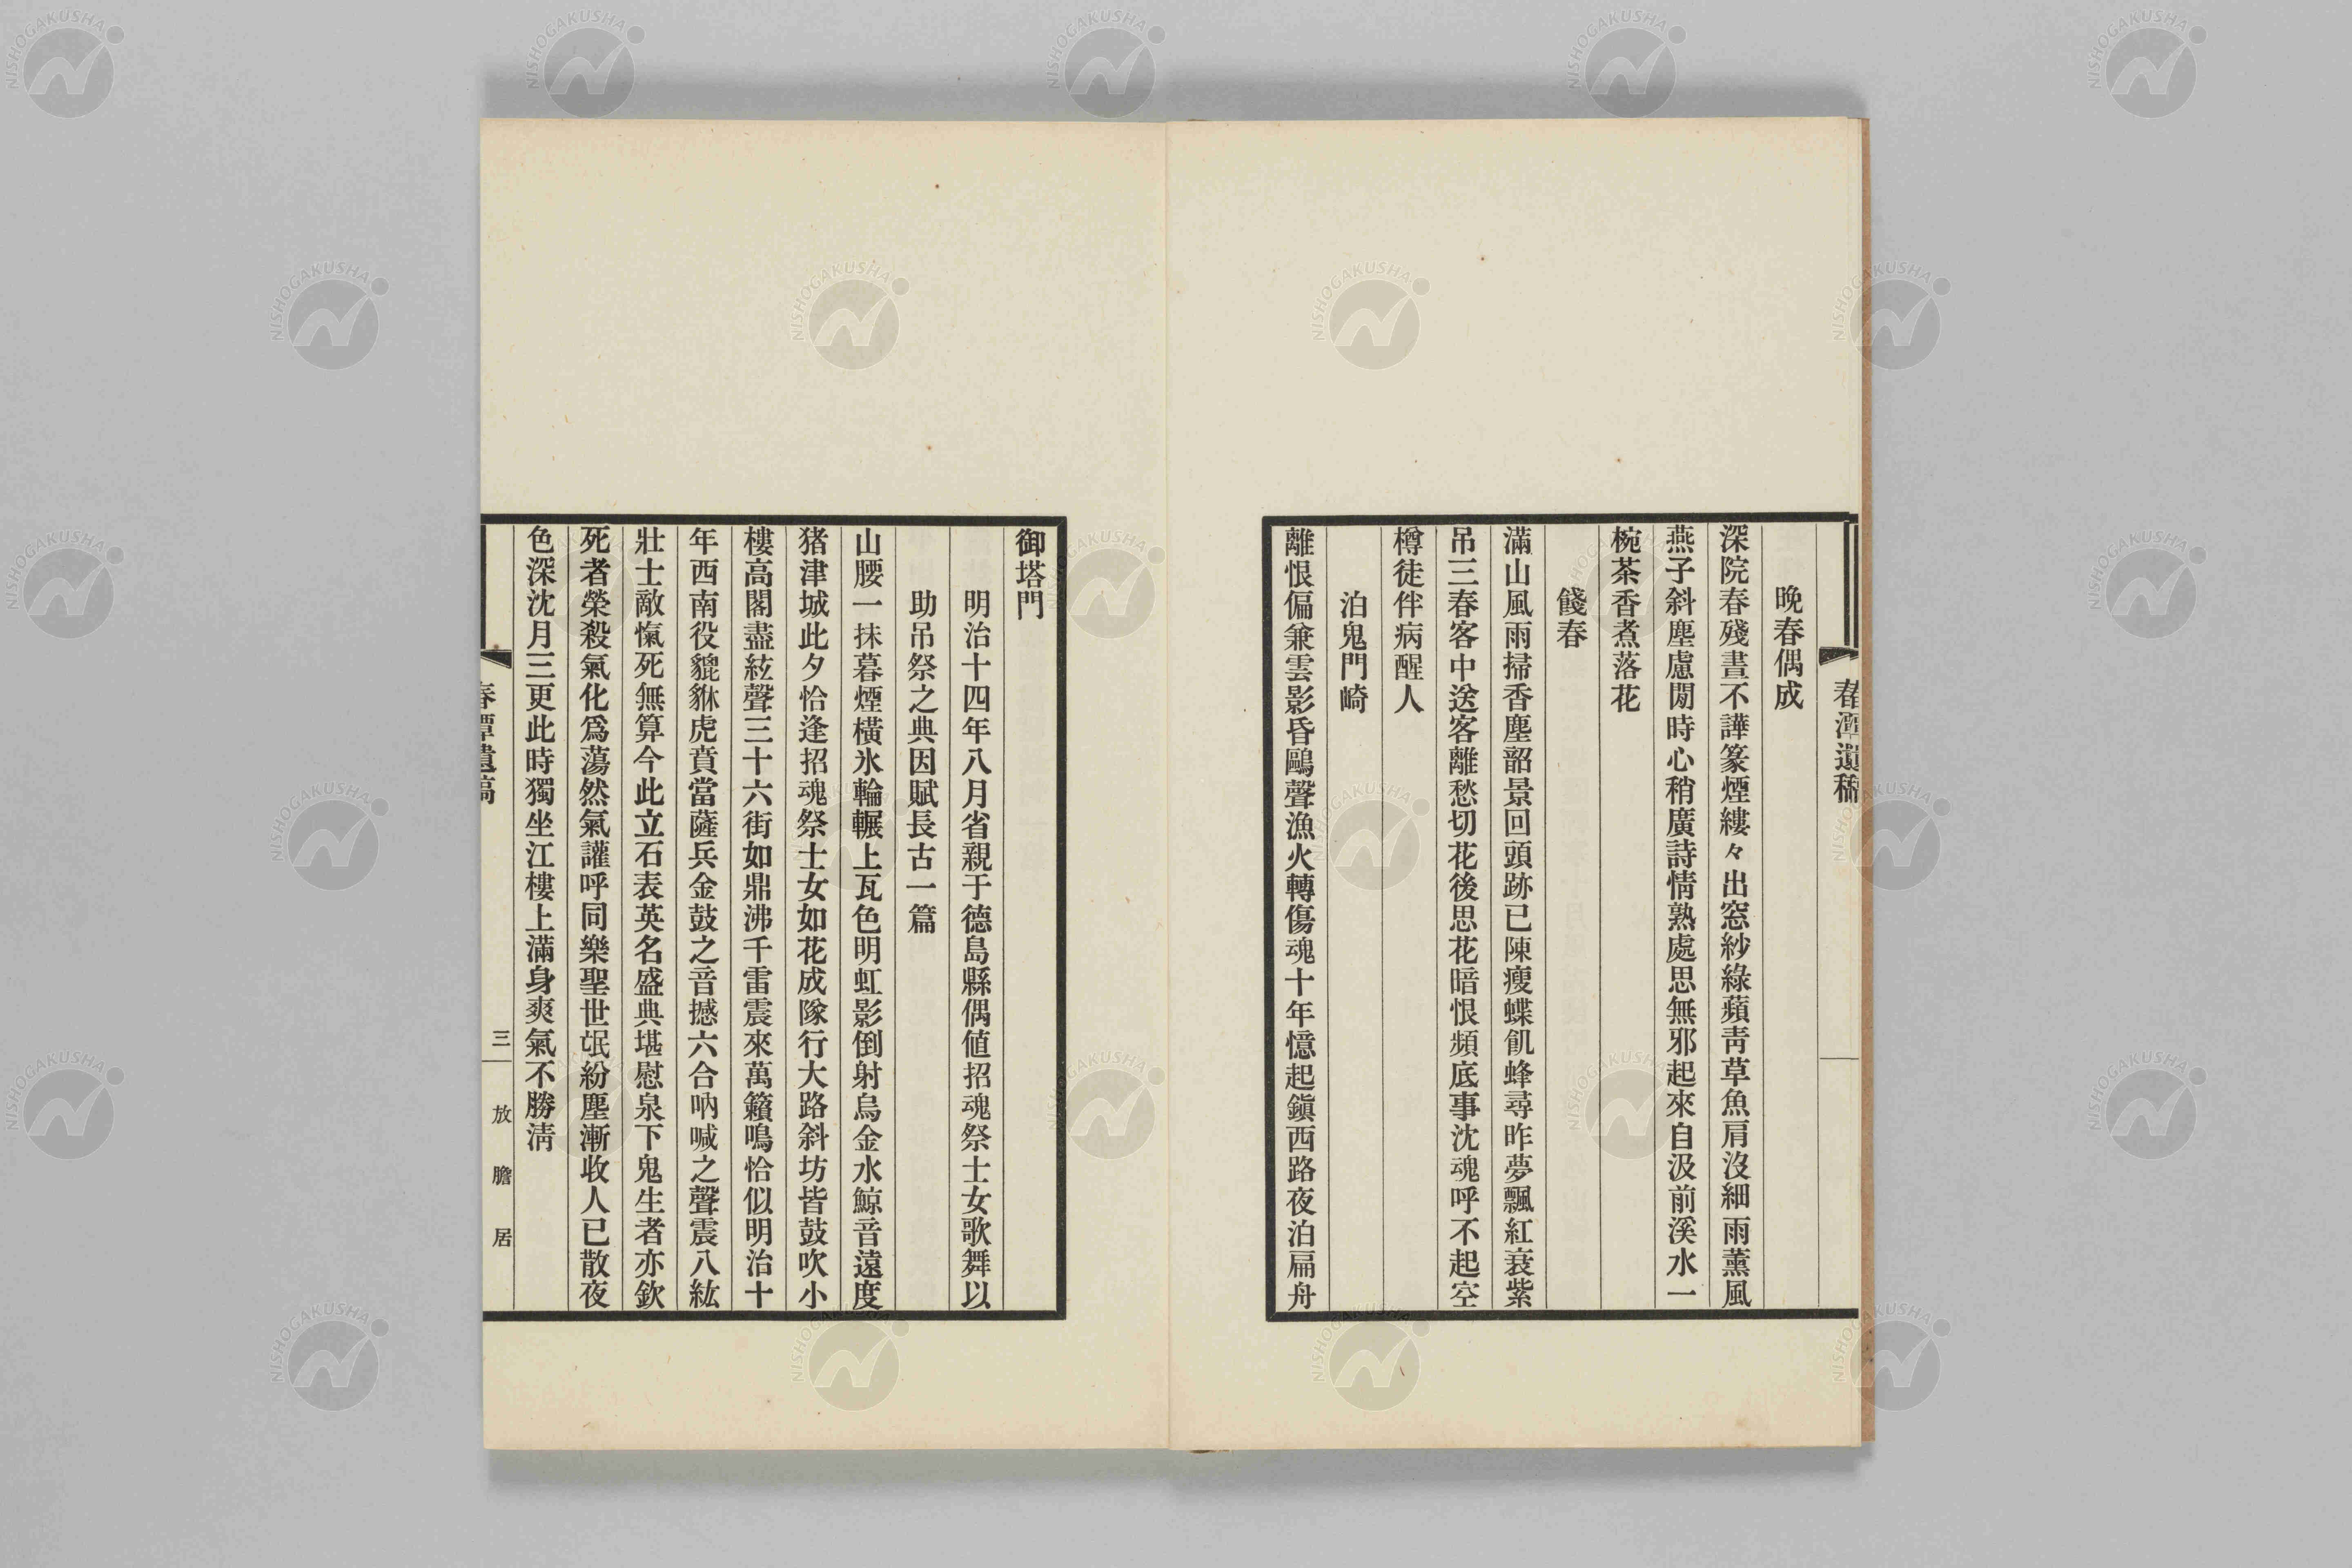 春潭遺稿
晩春偶成
深院春殘晝不譁篆煙縷々出窓紗綠蘋靑草魚肩沒細雨薰風
燕子斜塵慮閒時心稍廣詩情熟處思無邪起來自汲前溪水一
椀茶香煮落花
餞春
滿山風雨掃香塵韶景回頭跡已陳瘦蝶飢蜂尋昨夢飄紅衰紫
吊三春客中送客離愁切花後思花暗恨頻底事沈魂呼不起空
樽徒伴病醒人
泊鬼門崎
離恨偏兼雲影昏鷗聲漁火轉傷魂十年憶起鎭西路夜泊扁舟
御塔門
明治十四年八月省親于德島縣偶値招魂祭士女歌舞以
助吊祭之典因賦長古一篇
山腰一抹暮煙橫氷輪輾上瓦色明虹影倒射烏金水鯨音遠度
猪津城此夕恰逢招魂祭士女如花成隊行大路斜坊皆鼓吹小
樓高閣盡絃聲三十六街如鼎沸千雷震來萬籟鳴恰似明治十
年西南役貔貅虎賁當薩兵金鼓之音撼六合吶喊之聲震八紘
壯士敵愾死無算今此立石表英名盛典堪慰泉下鬼生者亦欽
死者榮殺氣化爲蕩然氣讙呼同樂聖世氓紛塵漸收人已散夜
色深沈月三更此時獨坐江樓上滿身爽氣不勝淸
春潭遺稿
三
放膽居